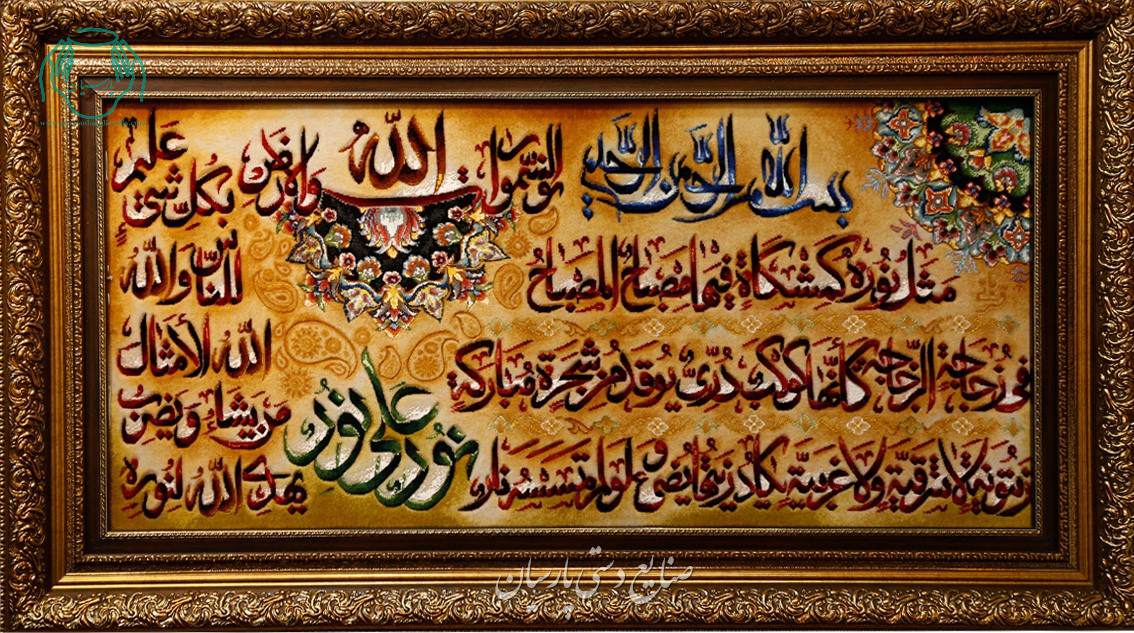 بسم الله الرحمن الرحيم
الله نور السموات والارض
مَثَلُ نُورِهِ كَمِشْكَاةٍ فِيهَا مِصْبَاحٌ المِصْبَاحُ
فِي زُجَاجَةٍ الزُّجَاجَةُ كَأَنَّهَا كَوْكَبٌ دُرِّيٌّ يُوقَدُ مِنْ شَجَرَةٍ مُبَارَكَةٍ
زَيْتُونَةٍ لَا شَرْقِيَّةٍ وَلَا غَرْبِيَّةٍ يَكَادُ زَيْتُهَا يُضِيءُ وَلَوْ لَمْ تَمْسَسْهُ نَارٌ
نُورٌ عَلَى نُورٍ
يَهْدِي اللهُ لِنُورِهِ
مَنْ يَشَاءُ وَيَضْرِبُ
اللهُ الأَمْثَالَ
لِلنَّاسِ وَاللهُ
بِكُلِّ شَيْءٍ
عَلِيمٌ
صنایع دستی پارسیان